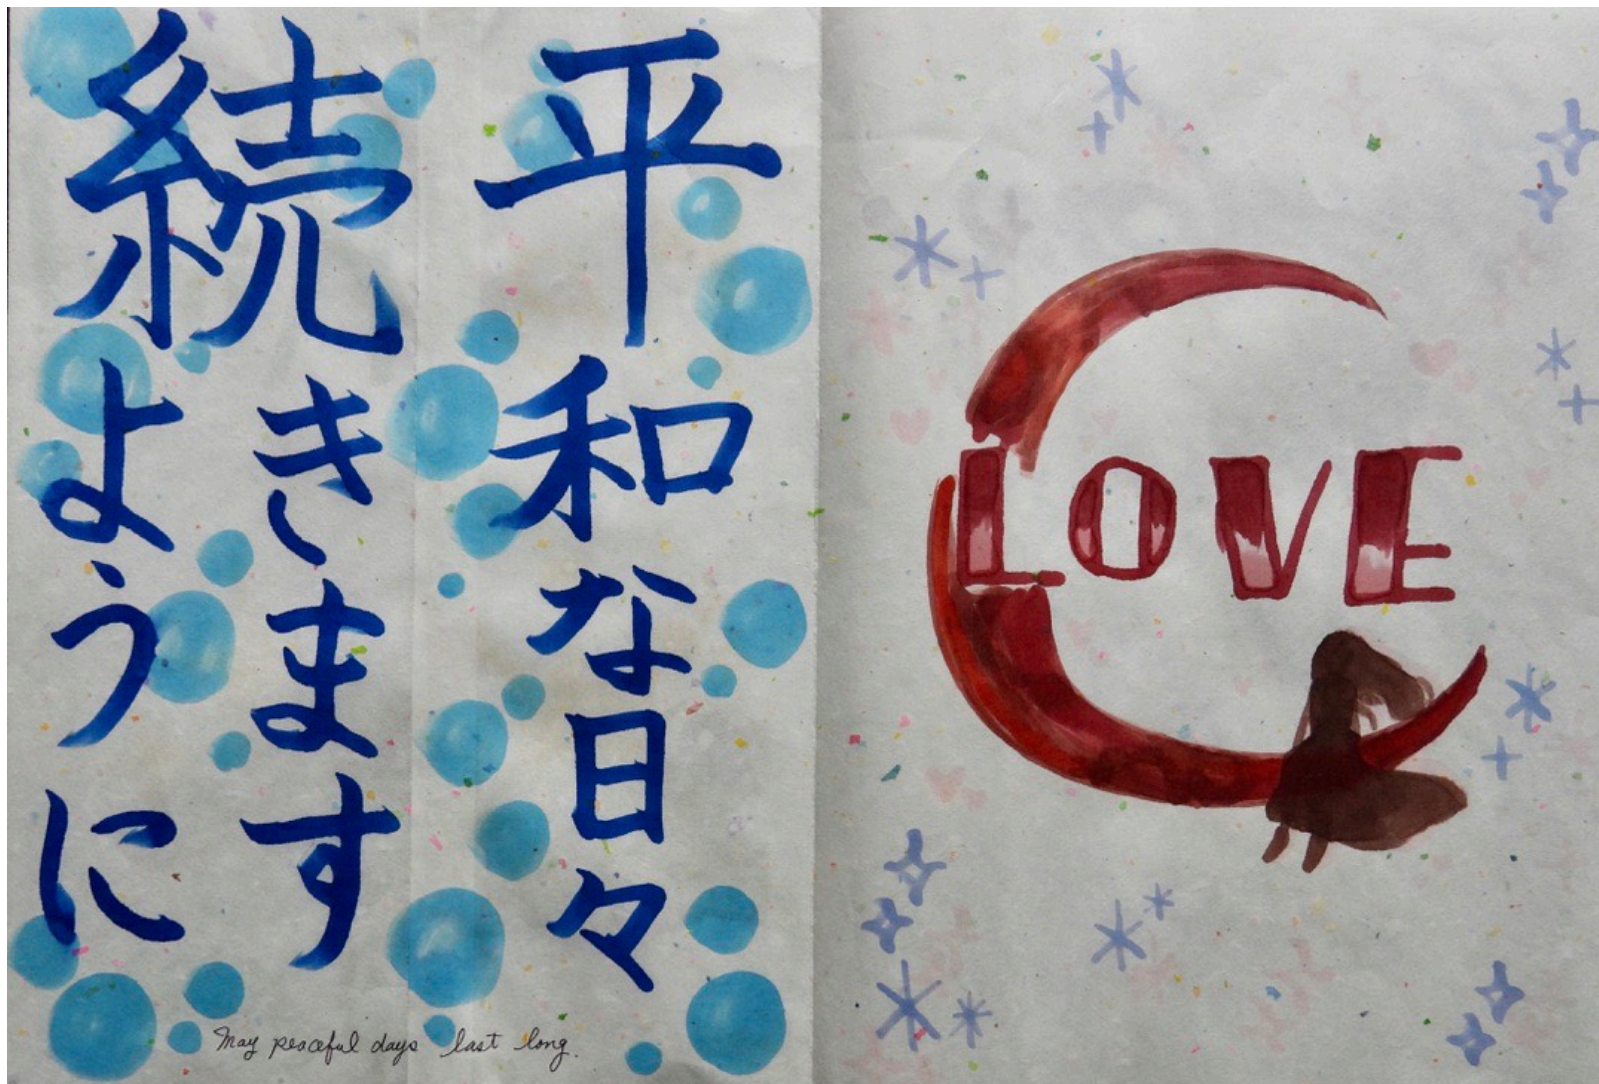 平和な日々
続きます
ように
May peaceful days last long.
LOVE